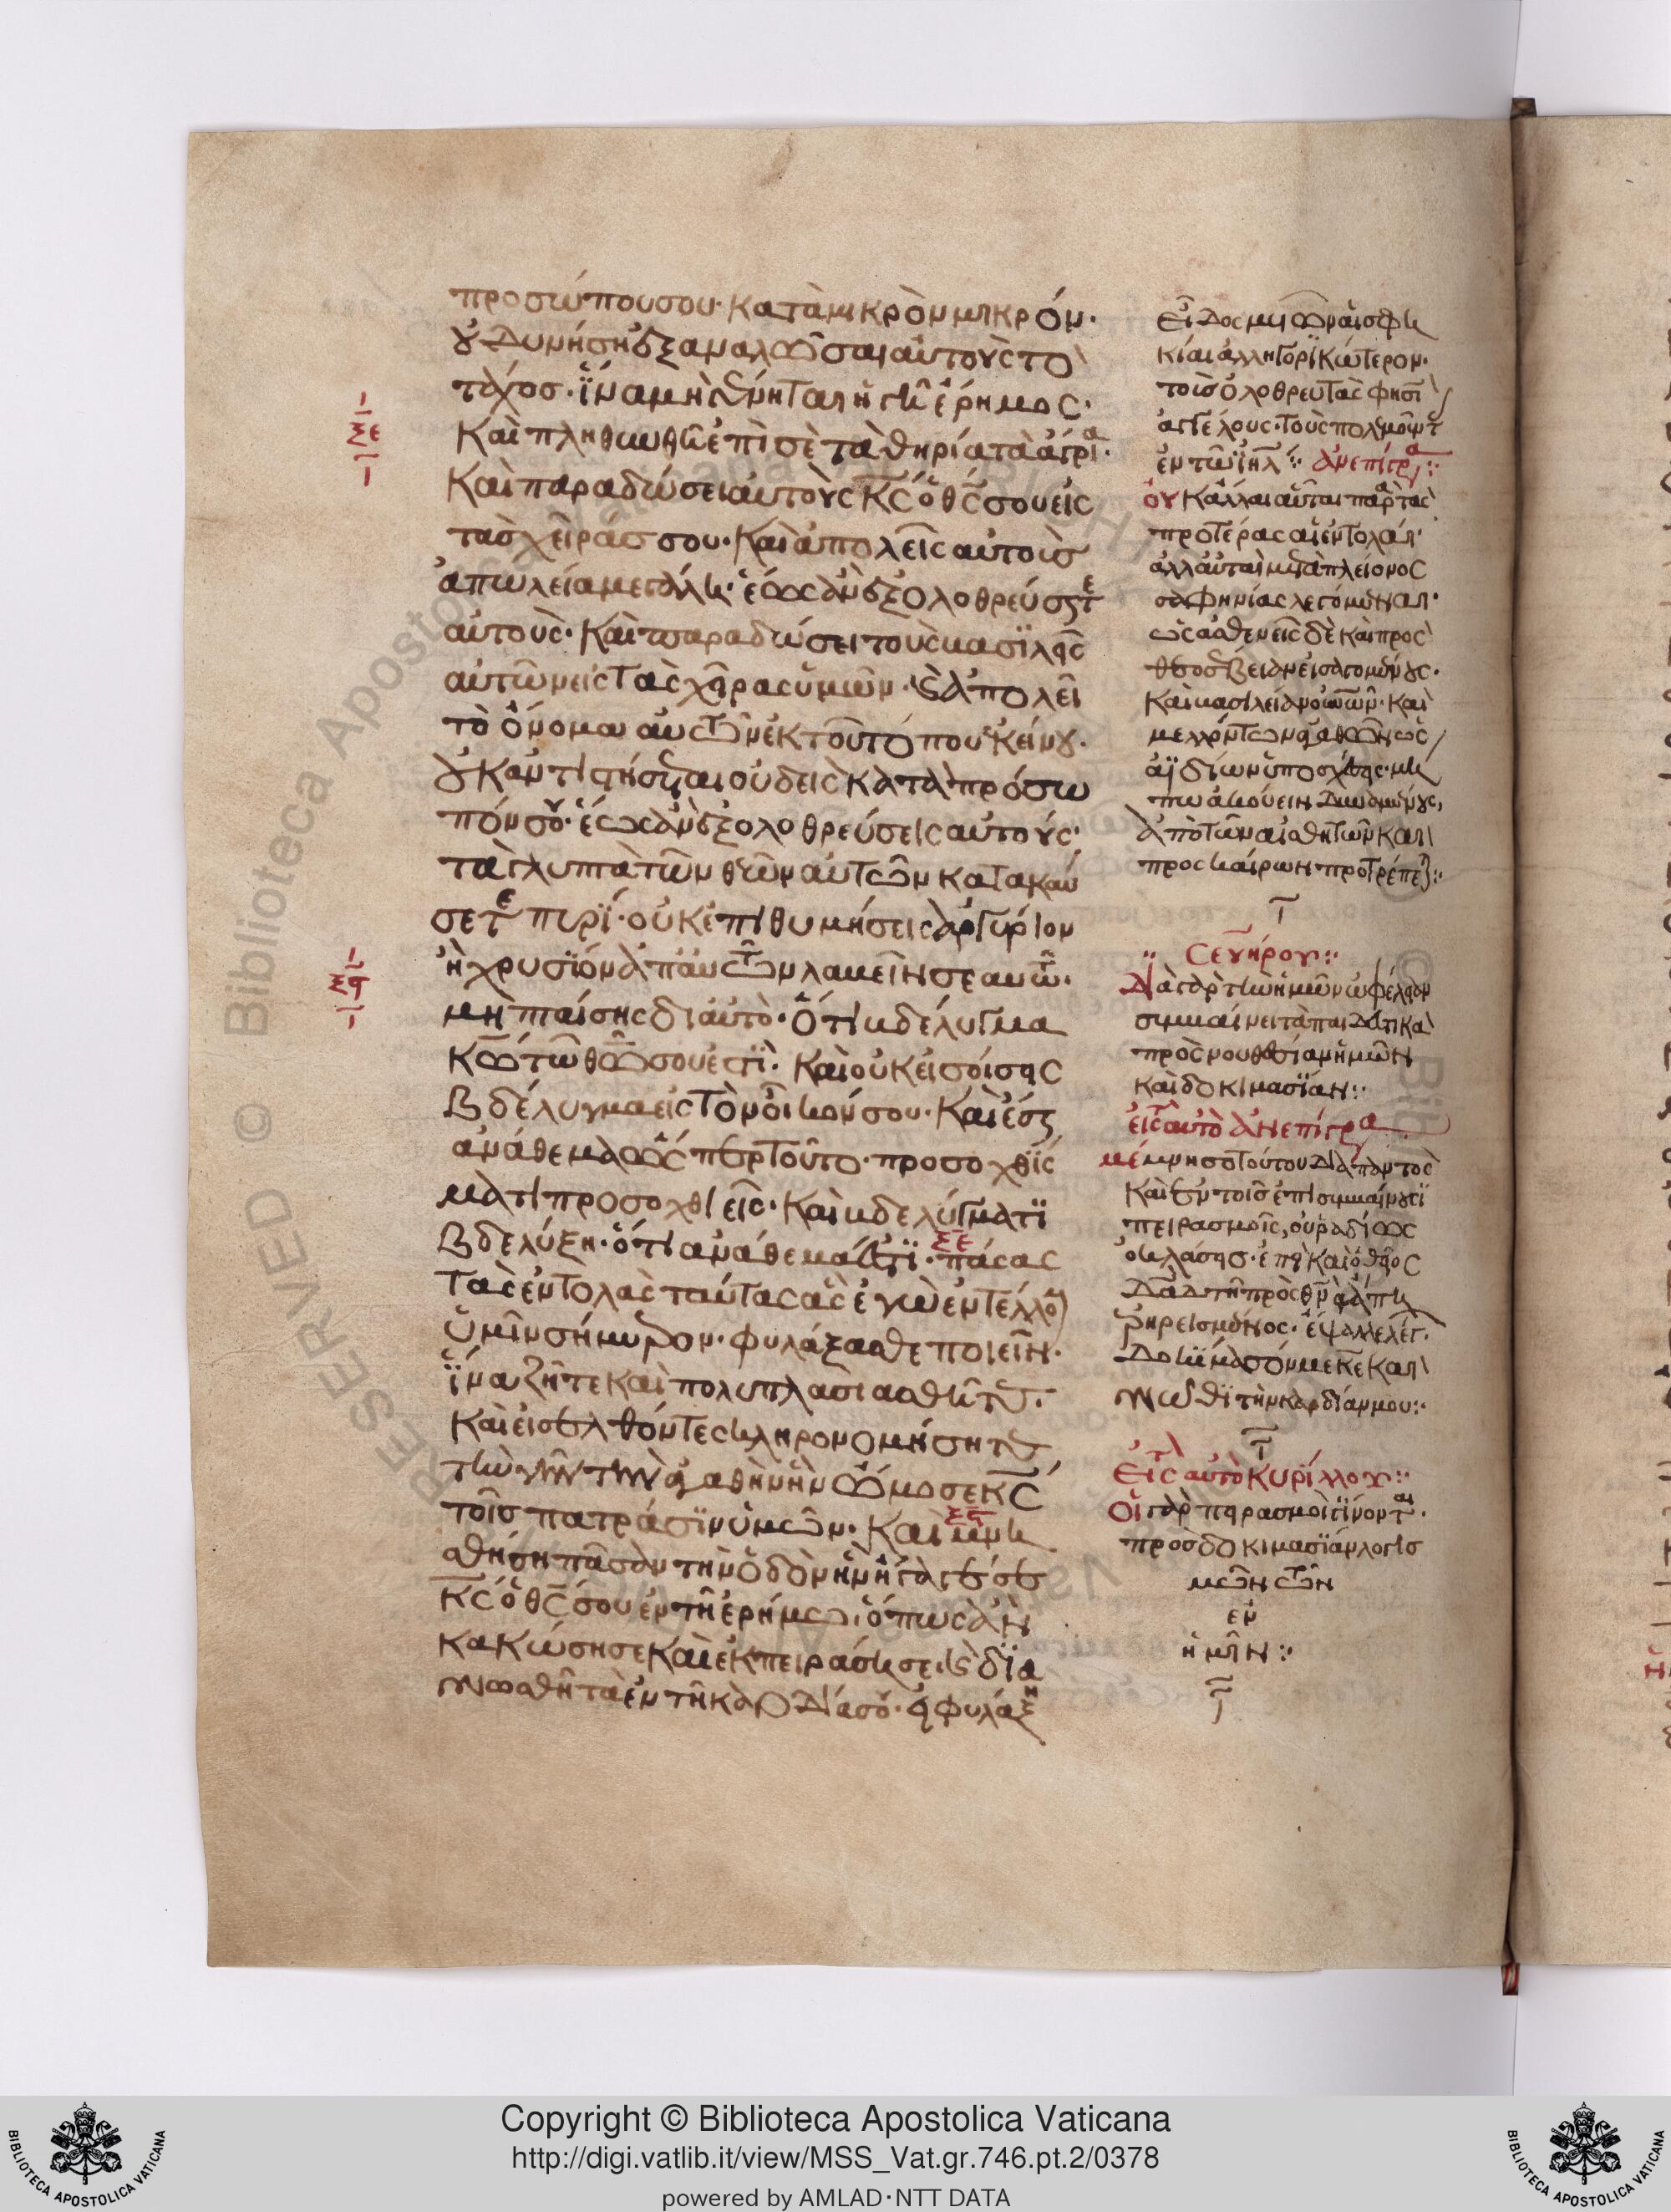 προσώπου σου· κατὰ μικρὸν μικρόν·
οὐ δυνήση ἐξαναλῶσαι αὐτοὺς τὸ
τάχος· ἵνα μὴ γένηται ἡ γῆ ἔρημος·
Καὶ πληθυνθῆ ἐπὶ σὲ τὰ θηρία τὰ ἄγρια·
Καὶ παραδώσει αὐτοὺς κς ὁ θς σου εἰς
τὰς χεῖράς σου· Καὶ ἀπολεῖς αὐτοὺς
ἀπωλεία μεγάλη· ἕως ἂν ἐξολοθρεύσητε
αὐτούς· Καὶ παραδώσει τοὺς βασιλεῖς
αὐτῶν εἰς τὰς χεῖρας ὑμῶν· καὶ ἀπολεῖ
τὸ ὄνομα αὐτῶν ἐκ τοῦ τόπου ἐκείνου·
οὐκ ἀντιστήσεται οὐδεὶς κατὰ πρόσω
πόν σου· ἕως ἂν ἐξολοθρεύσεις αὐτούς·
τὰ γλυπτὰ τῶν θεῶν αὐτῶν κατακαύ
σετε πυρί· οὐκ ἐπιθυμήσεις ἀργύριον
ἢ χρυσίον ἀπ' αὐτῶν λαβεῖν σεαυτῶ·
μὴ πταίσης δι' αὐτό· ὅτι βδέλυγμα
κω τῶ θω σου ἐστί· Καὶ οὐκ εἰσοίσεις
βδέλυγμα εἰς τὸν οἶκόν σου· Καὶ ἔση
ἀνάθεμα ὥσπερ τοῦτο· προσοχθίσ
ματι προσοχθιεῖς· Καὶ βδελύγματι
βδελύξη· ὅτι ἀνάθεμά ἐστι· πάσας
τὰς ἐντολὰς ταύτας ἃς ἐγὼ ἐντέλλομαι
ὑμῖν σήμερον· φυλάξασθε ποιεῖν·
ἵνα ζῆτε καὶ πολυπλασιασθῆτε·
Καὶ εἰσελθόντες κληρονομήσητε
τὴν γῆν τὴν ἀγαθὴν ἣν ὤμοσε κς
τοῖς πατράσιν ὑμῶν· Καὶ μνη
σθήση πᾶσαν τὴν ὁδὸν ἣν ἤγαγέ σε
κς ὁ θς σου ἐν τῆ ἐρήμω· ὅπως ἂν
κακώση σε καὶ ἐκπειράση σε· καὶ δια
γνωσθῆ τὰ ἐν τῆ καρδία σου· εἰ φυλάξη
ξε
ξϛ
ξε
ξϛ
κίαι ἀλληγορικώτερον·
τοὺς ὀλοθρευτὰς φησὶ
ἀγγέλους· τοὺς πολεμοῦντ
ἐν τῶ ιηλ:· ἀνεπίγρα:·
οὐκ ἄλλαι αὗται παρὰ τὰς
προτέρας αἱ ἐντολαί·
ἀλλ' αὗται μετὰ πλείονος
σαφηνίας λεγόμεναι·
ὡς ἀσθενεῖς δὲ καὶ πρὸς
θεοσέβειαν εἰσαγομένους·
Καὶ βασιλείαν οὐνῶν· Καὶ
μελλόντων ἀγαθῶν ὡς
ἀϊδίων ὑποσχέσεις· μή
πω ἀκούειν δυναμένους,
ἀπὸ τῶν αἰσθητῶν καὶ
προσκαίρων προτρέπει:·
Σευήρου:·
Διὰ γὰρ τὴν ἡμῶν ὠφέλειαν
συμβαίνει τὰ παιδευτικὰ
πρὸς νουθεσίαν ἡμῶν
καὶ δοκιμασίαν:·
εἰς τὸ αὐτὸ ἀνεπίγρα
μέμνησο τούτου διὰ παντὸς
Καὶ ἐν τοῖς ἐπισυμβαίνουσι
πειρασμοῖς, οὐ ῥαδίως
ὀκλάσης· ἐπεὶ καὶ ὁ θεῖος
δαδ τῆ πρὸς θν ἀγάπη
ἔψαλλε λέγ·
Δοκίμασόν με κε καὶ
γνῶθι τὴν καρδίαν μου:·
Εἰς τὸ αὐτὸ Κυρίλλου:·
Οἱ γὰρ πειρασμοὶ γίνονται
πρὸς δοκιμασίαν λογισ
μῶν τῶν
ἐν
ἡμῖν:·
Copyright © Biblioteca Apostolica Vaticana
http://digi.vatlib.it/view/MSS_Vat.gr.746.pt.2/0378
powered by AMLAD·NTT DATA
BIBLIOTECA APOSTOLICA VATICANA
BIBLIOTECA APOSTOLICA VATICANA